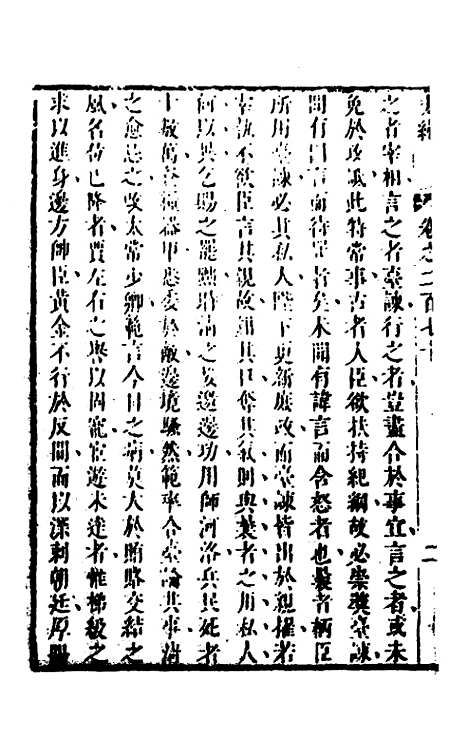 卷之二百七十
二
之者宰相言之者臺諫行之者豈盡合於事宜言之者或未
免於攻詆此特常事古者人臣欲扶持紀綱故必崇獎臺諫
間有因言而待罪者矣未聞有諱言而含怒者也曩者柄臣
所用臺諫必其私人陛下更新庶政而臺諫皆出於親擢若
宰執不欲臣言其親故鉗其口奪其氣則與曩者之用私人
何以異乞賜之罷黜時清之
邊功用師河洛兵民死者
十數萬
器甲悉委於敵邊境騷然範率合臺論其事清
之愈忌之改太常少卿範言今日之病莫大於賄賂交結之
風名
已隆者賈左右之譽以固寵宦遊未達者惟梯級之
求以進身邊方帥臣黃金不行於反間而以深刺朝廷厚